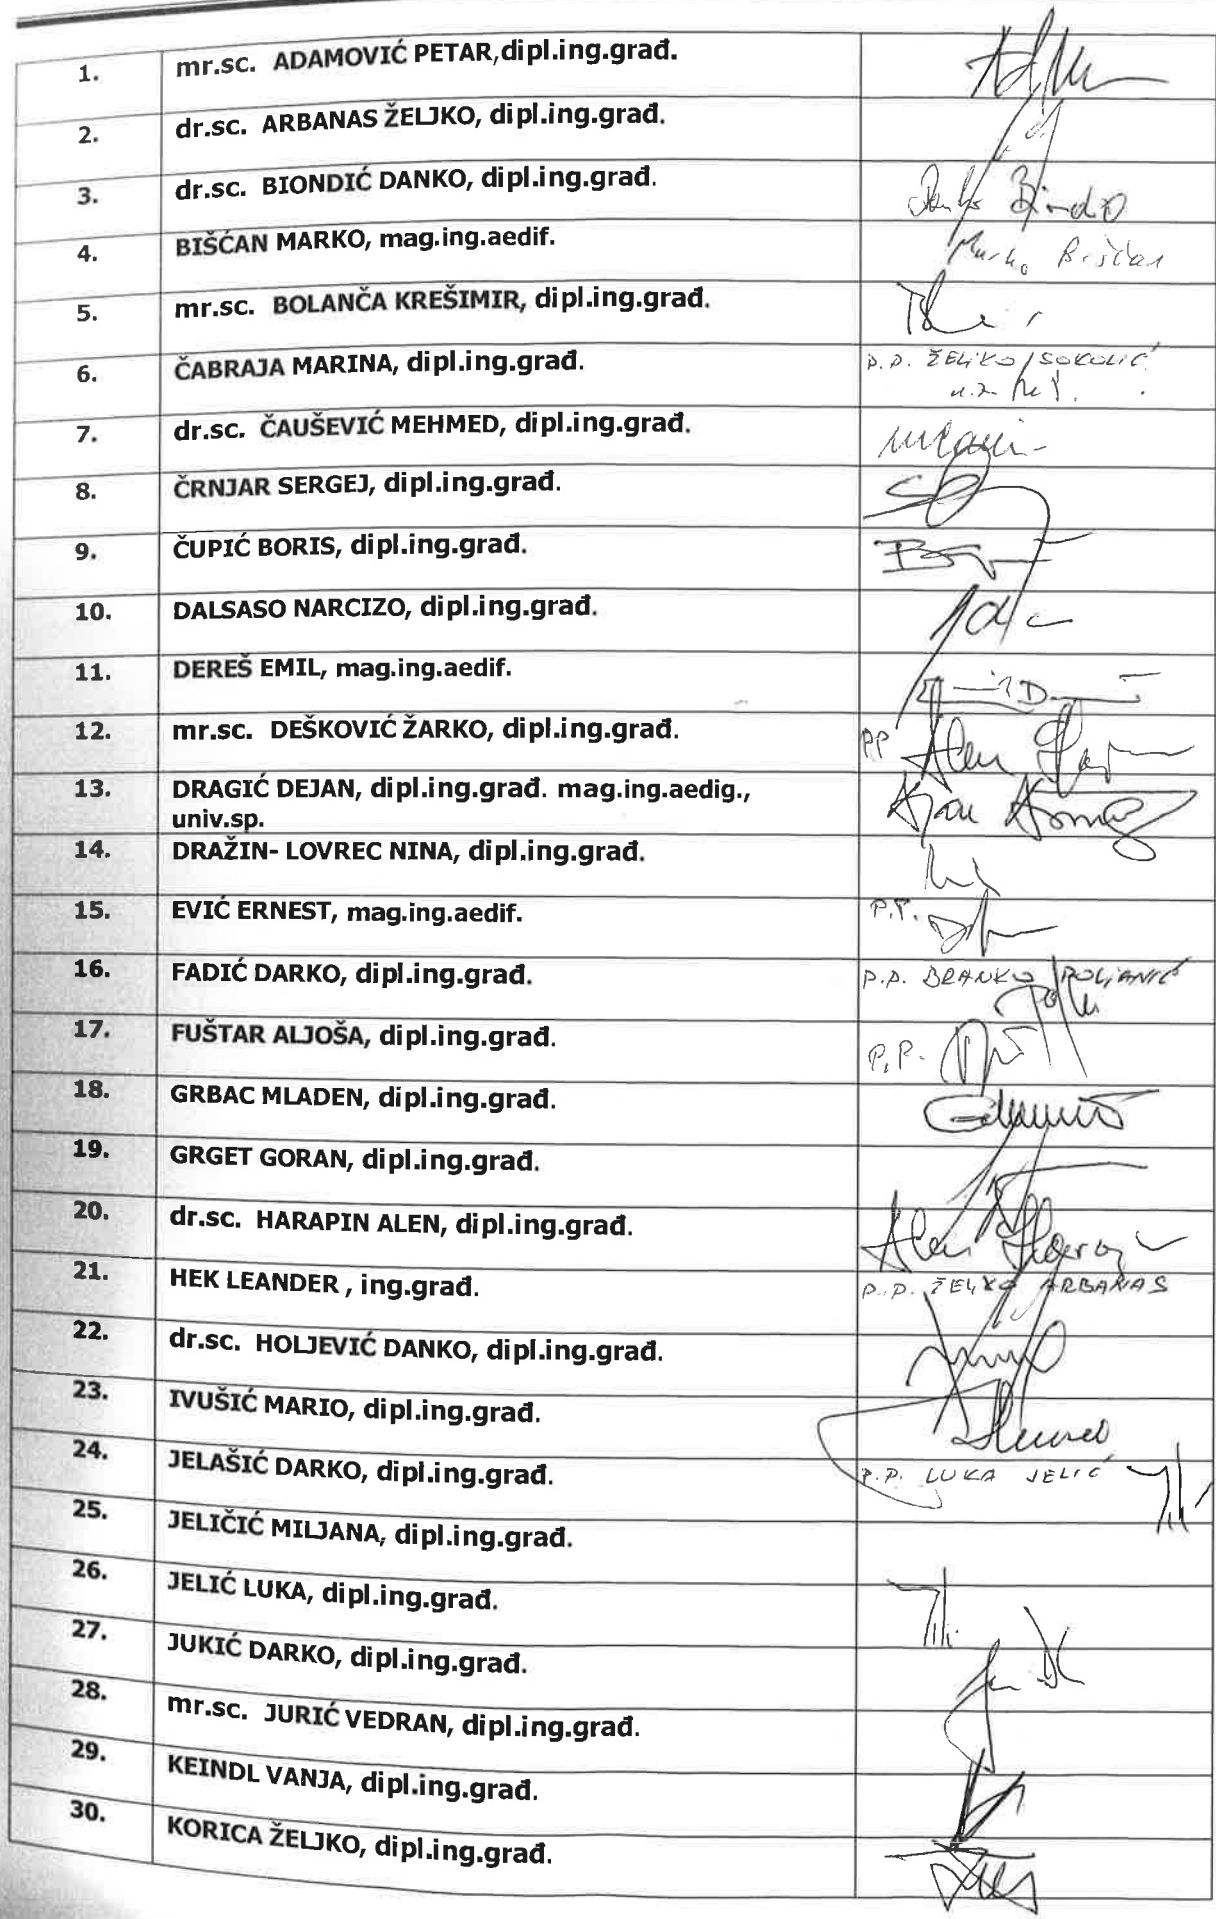 1. mr.sc. ADAMOVIĆ PETAR,dipl.ing.građ.
2. dr.sc. ARBANAS ŽELJKO, dipl.ing.građ.
3. dr.sc. BIONDIĆ DANKO, dipl.ing.građ.
4. BIŠĆAN MARKO, mag.ing.aedif. Marko Bišćan
5. mr.sc. BOLANČA KREŠIMIR, dipl.ing.građ.
6. ČABRAJA MARINA, dipl.ing.građ. P.P. ŽELJKO SOKOLIĆ
7. dr.sc. ČAUŠEVIĆ MEHMED, dipl.ing.građ.
8. ČRNJAR SERGEJ, dipl.ing.građ.
9. ČUPIĆ BORIS, dipl.ing.građ.
10. DALSASO NARCIZO, dipl.ing.građ.
11. DEREŠ EMIL, mag.ing.aedif.
12. mr.sc. DEŠKOVIĆ ŽARKO, dipl.ing.građ. PP Alen
13. DRAGIĆ DEJAN, dipl.ing.građ. mag.ing.aedig.,
univ.sp.
14. DRAŽIN- LOVREC NINA, dipl.ing.građ.
15. EVIĆ ERNEST, mag.ing.aedif. P.P.
16. FADIĆ DARKO, dipl.ing.građ. P.P. BRANKO POLJANIĆ
17. FUŠTAR ALJOŠA, dipl.ing.građ. P.P.
18. GRBAC MLADEN, dipl.ing.građ.
19. GRGET GORAN, dipl.ing.građ.
20. dr.sc. HARAPIN ALEN, dipl.ing.građ. Alen
21. HEK LEANDER , ing.građ. P.P. ŽELJKO ARBANAS
22. dr.sc. HOLJEVIĆ DANKO, dipl.ing.građ.
23. IVUŠIĆ MARIO, dipl.ing.građ.
24. JELAŠIĆ DARKO, dipl.ing.građ. P.P. LUKA JELIĆ
25. JELIČIĆ MILJANA, dipl.ing.građ.
26. JELIĆ LUKA, dipl.ing.građ.
27. JUKIĆ DARKO, dipl.ing.građ.
28. mr.sc. JURIĆ VEDRAN, dipl.ing.građ.
29. KEINDL VANJA, dipl.ing.građ.
30. KORICA ŽELJKO, dipl.ing.građ.